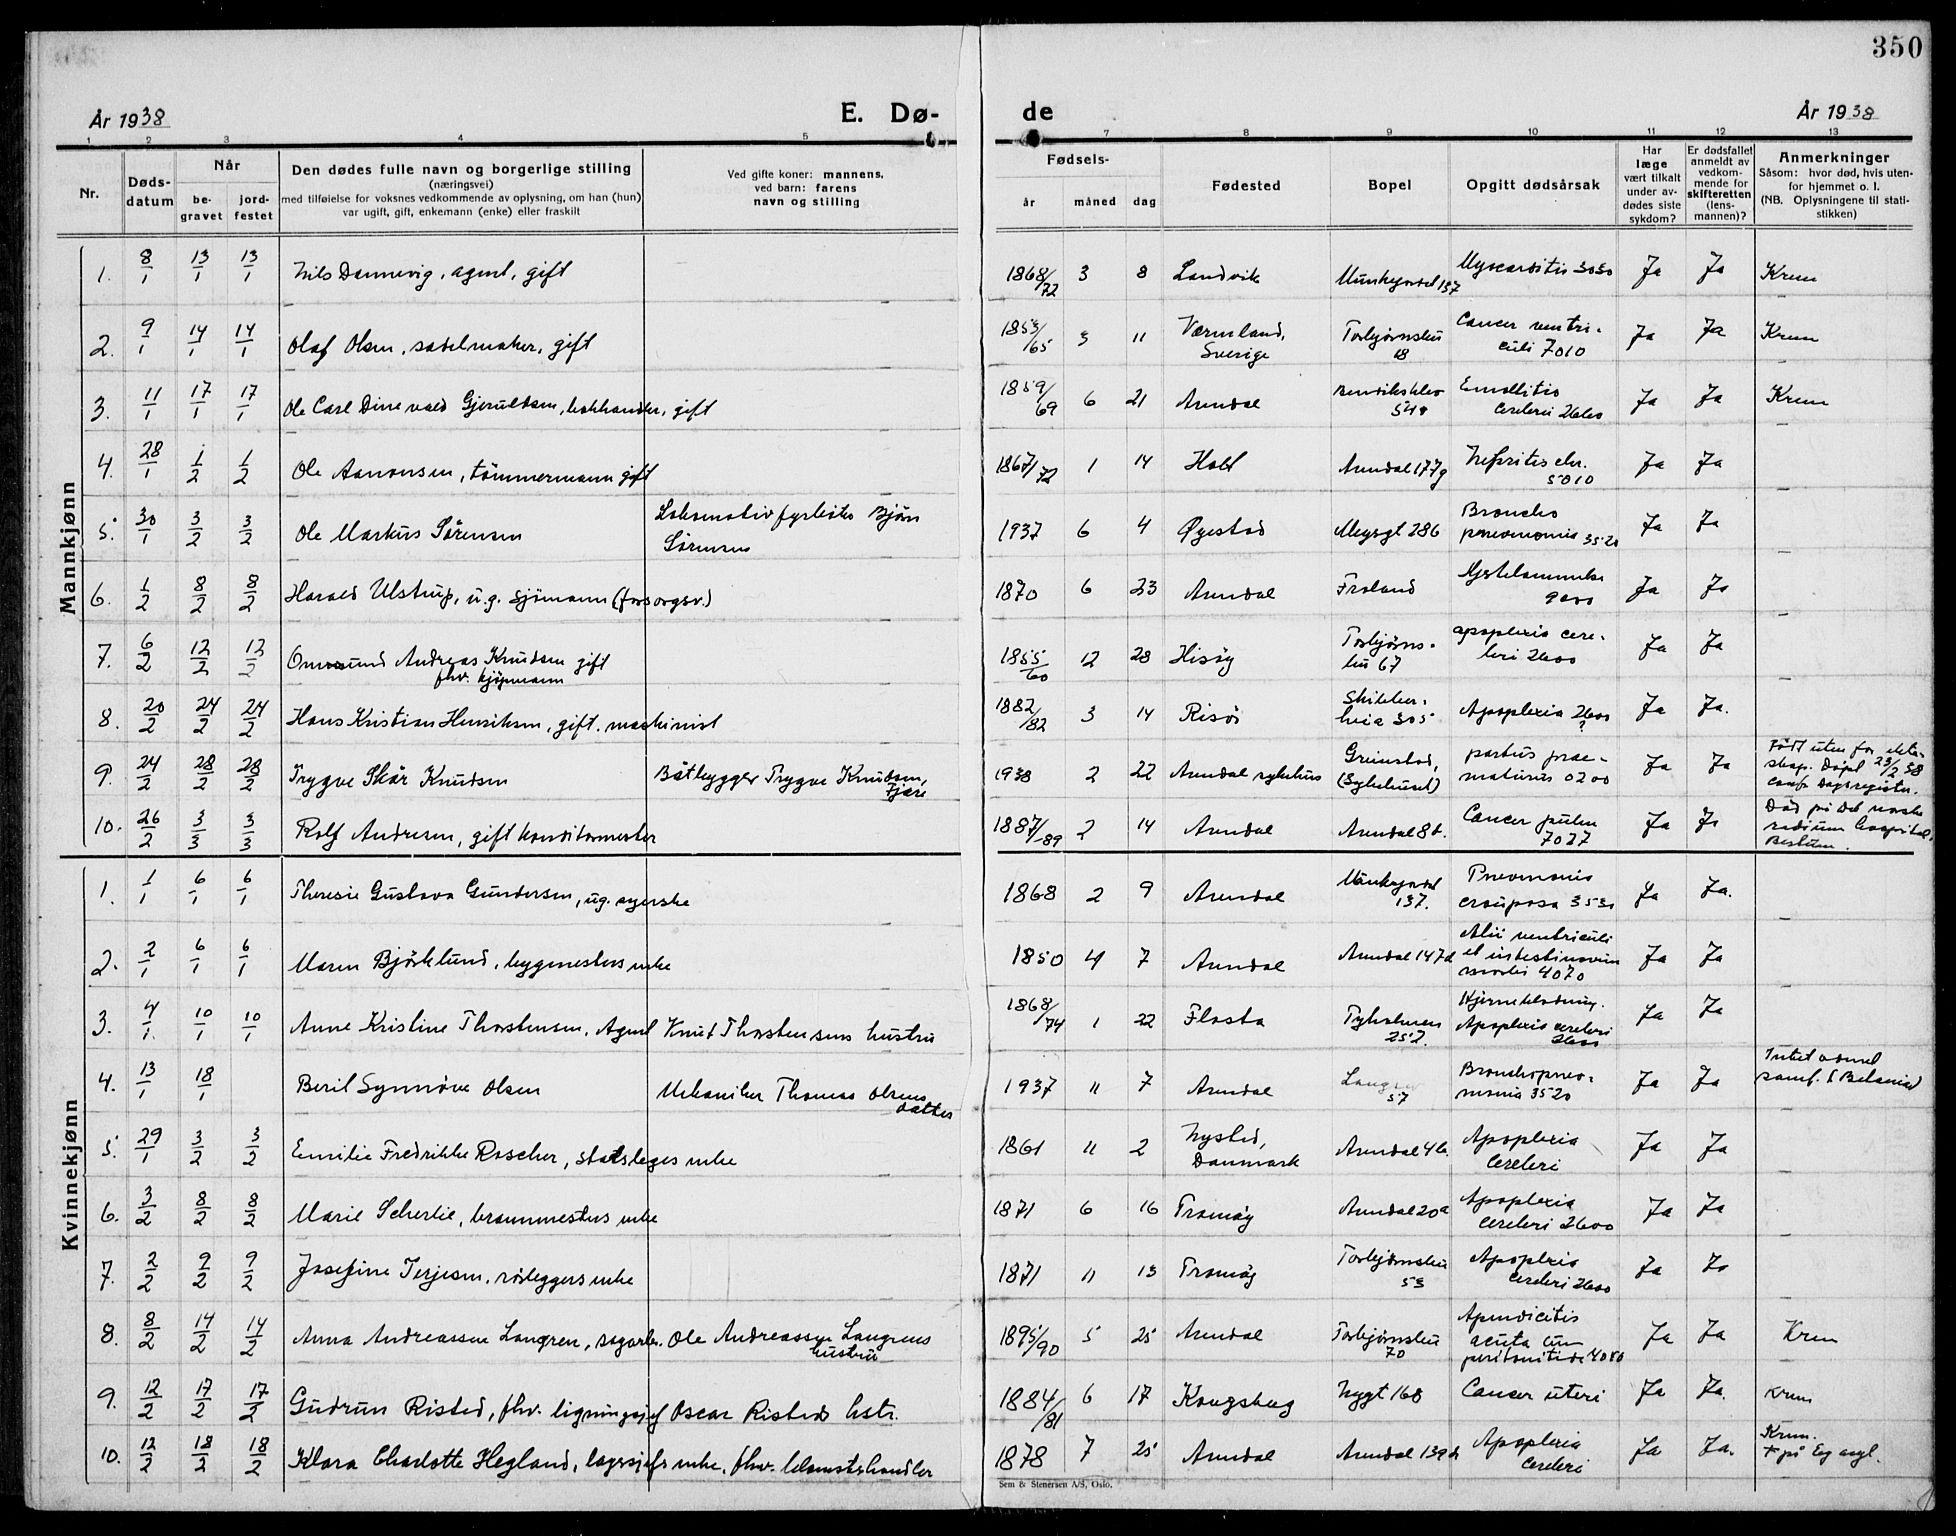 350
År 1938 E. Dø- de År 1938
1 2 3 4 5 7 8 9 10 11 12 13
Nr.
Døds-
datum
Når
be-
gravet
jord-
festet
Den dødes fulle navn og borgerlige stilling
(næringsvei)
med tilføielse for voksnes vedkommende av oplysning, om han (hun)
var ugift, gift, enkemann (enke) eller fraskilt
Ved gifte koner: mannens,
ved barn: farens
navn og stilling
Fødsels-
år måned dag
Fødested
Bopel
Opgitt dødsårsak
Har
læge
vært tilkalt
under av-
dødes siste
sykdom?
Er dødsfallet
anmeldt av
vedkom-
mende for
skifteretten
(lens-
mannen)?
Anmerkninger
Såsom: hvor død, hvis uten-
for hjemmet o. l.
(NB. Oplysningene til stati-
stikken)
Mannkjønn
1. 8/1 13/1 13/1 Nils Dannevig, agent, gift 1868/72 3 8 Landvik Munkegjordet 137 Myocarditis 3030 Ja Ja Krem
2. 9/1 14/1 14/1 Olaf Olsen, sadelmaker, gift 1853/65 3 11 Værmland, Sverige Torbjørnsbu 18 Cancer ventri-culi 7010 Ja Ja Krem
3. 11/1 17/1 17/1 Ole Carl Dinevald Gjeruldsen, bokhandler, gift 1859/69 6 21 Arendal Bendiksklev 548 Emollitio cerebri 2600 Ja Ja Krem
4. 28/1 1/2 1/2 Ole Aanonsen, tømmermann gift 1867/72 1 14 Holt Arendal 177g Nefritis chr. 5010 Ja Ja
5. 30/1 3/2 3/2 Ole Markus Sørensen Lokomotivfyrbøter Bjørn Sørensen 1937 6 4 Øyestad Meyrgt 286 Broncho pneumonia 3520 Ja Ja
6. 1/2 8/2 8/2 Harald Ulstrup, u.g. sjømann (forsorgsv.) 1870 6 23 Arendal Froland Hjertelammelse 9000 Ja Ja
7. 6/2 12/2 12/2 Onesund Andreas Knudsen gift fhv. kjøpmann 1855/60 12 28 Hisøy Torbjørns-bu 67 apoplexia cere-bri 2600 Ja Ja
8. 20/2 24/2 24/2 Hans Kristian Henriksen, gift. maskinist 1882/82 3 14 Risør heia 305 Apoplexia 2600 ? Ja Ja.
9. 24/2 28/2 28/2 Trygve Skår Knudsen Båtbygger Trygve Knudsen, Fjære 1938 2 22 Arendal sykehus Grimstad, (Sykehuset) partus prae-maturus 0200 Ja Ja Født uten for ekte-skap. Døpt 23/2 38 conf. Dagsregister.
10. 26/2 3/3 3/3 Rolf Andresen, gift konditormester 1887/-89 2 14 Arendal Arendal 8b. Cancer pulm 7027 Ja Ja Død på Det norske radium hospital, Bestum.
Kvinnekjønn
1. 1/1 6/1 6/1 Theresie Gustava Gundersen, ug. syerske 1868 2 9 Arendal Munkegjordet 137. Pneumonia crouposa 3530 Ja Ja.
2. 2/1 6/1 6/1 Maren Bjørklund, bygmesters enke 1850 4 7 Arendal Arendal 147d Alii ventriculi et intestinorum morbi 4070 Ja Ja
3. 4/1 10/1 10/1 Anne Kristine Thorstensen, Agent Knut Thorstensens hustru 1868/74 1 22 Flosta Tyholmen 252. Hjerneblødning. Apoplexia cerebri 2600 Ja Ja
4. 13/1 18/1 Beril Synnøve Olsen Mekaniker Thomas Olsens datter 1937 11 7 Arendal 57 Bronchopneu-monia 3520 Ja Ja Intet samf. (Betania)
5. 29/1 3/2 3/2 Emilie Fredrikke Roscher, statslæges enke 1861 11 2 Nysted, Danmark Arendal 4b. Apoplexia cerebri Ja Ja
6. 3/2 8/2 8/2 Marie Scherlie, brannmesters enke 1871 6 16 Tromøy Arendal 20a Apoplexia cerebri 2600 Ja Ja
7. 2/2 9/2 9/2 Josefine Terjesen, rørleggers enke 1871 11 13 Tromøy Torbjørnsbu 53 Apoplexia cerebri 2600 Ja Ja
8. 8/2 14/2 14/2 Anna Andreassen Langren, sagarb. Ole Andreassen Langrens hustru 1895/90 5 25 Arendal Torbjørnsbu 70 Apendicitis acuta cum peritonitide 4080 Ja Ja Krem
9. 12/2 17/2 17/2 Gudrun Risted, fhv. ligningssjef Oscar Risteds hstr. 1884/81 6 17 Kongsberg Nygt 168 Cancer uteri Ja Ja. Krem
10. 12/2 18/2 18/2 Klara Charlotte Hegland, lagersjefs enke, fhv. blomsterhandler 1878 7 25 Arendal Arendal 139d Apoplexia cerebri Ja Ja. Krem. † på Eg asyl.
Sem & Stenersen A/S, Oslo.